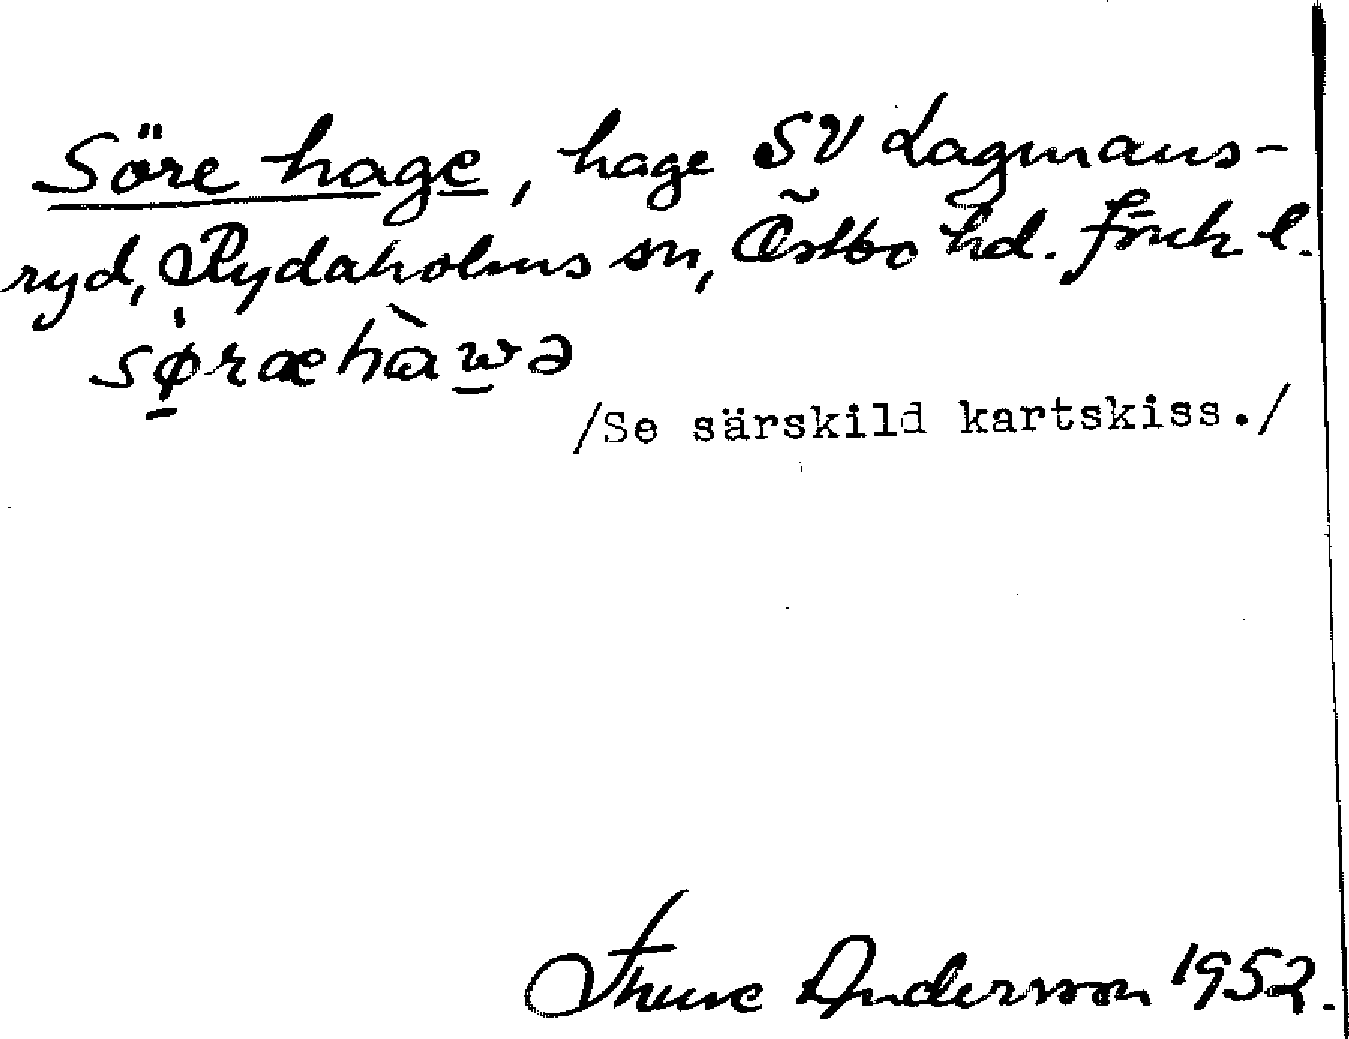 Söre hage, hage SV Lagmans-
ryd, Rydaholms sn, Östbo hd. Jönk. l.
sø̱ræhàw̱ə
/Se särskild kartskiss./
Thure Andersson 1952.